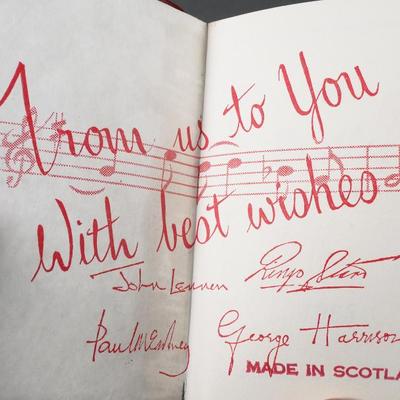 From us to You
With best wishes
John Lennon Ringo Starr
Paul McCartney George Harrison
MADE IN SCOTLA